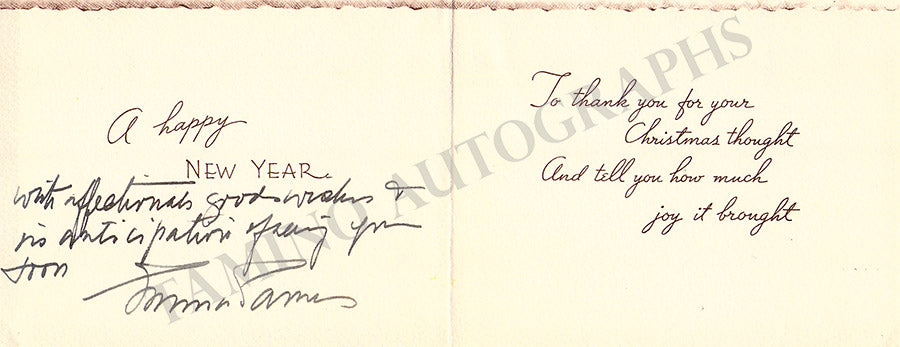 A happy
NEW YEAR.
with affectionate good wishes &
in anticipation of seeing you
soon
Emma Eames
To thank you for your
Christmas thought
And tell you how much
joy it brought
TAMINO AUTOGRAPHS